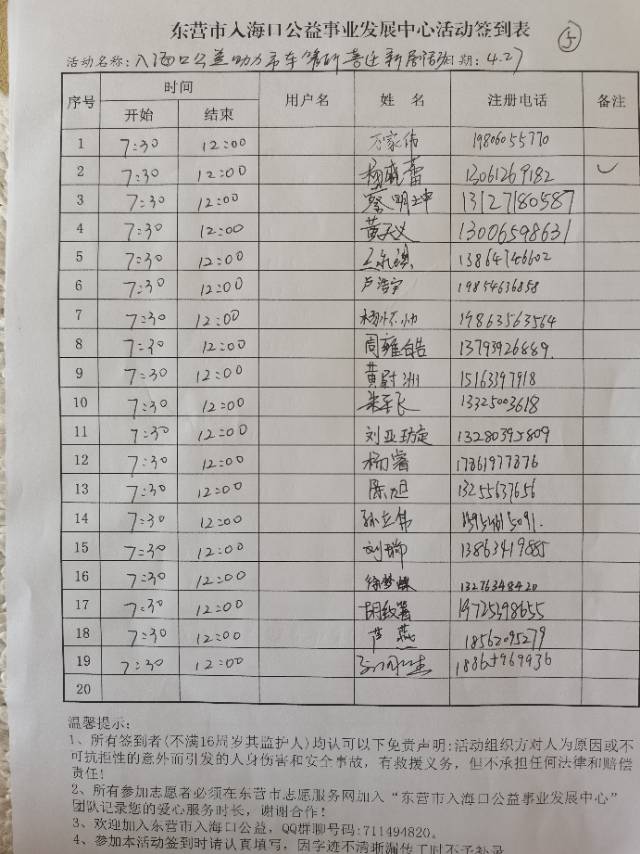 东营市入海口公益事业发展中心活动签到表
5
活动名称：入海口公益助力 日期：4.27
序号 时间 用户名 姓 名 注册电话 备注
开始 结束
1 7:30 12:00 万家伟 19806055770
2 7:30 12:00 杨晓蕾 13061269182
3 7:30 12:00 蔡明坤 13127180587
4 7:30 12:00 黄天义 13006598631
5 7:30 12:00 13864746602
6 7:30 12:00 卢浩宇 19854636858
7 7:30 12:00 19863563564
8 7:30 12:00 周雍皓 13793926889.
9 7:30 12:00 黄尉洲 15163197918
10 7:30 12:00 朱军飞 13325003618
11 7:30 12:00 刘亚琼 13280395809
12 7:30 12:00 杨睿 17861977876
13 7:30 12:00 陈旭 13255637656
14 7:30 12:00 孙立伟
15 7:30 12:00 刘瑞 13863419885
16 7:30 12:00 徐梦媒 13276348420
17 7:30 12:00 胡致菁 19725398655
18 7:30 12:00 芦燕 18562095279
19 7:30 12:00 18865969936
20
温馨提示：
1、所有签到者(不满16周岁其监护人)均认可以下免责声明:活动组织方对人为原因或不
可抗拒性的意外而引发的人身伤害和安全事故，有救援义务，但不承担任何法律和赔偿
责任!
2、所有参加志愿者必须在东营市志愿服务网加入“东营市入海口公益事业发展中心”
团队记录您的爱心服务时长，谢谢合作!
3、欢迎加入东营市入海口公益，QQ群聊号码:711494820。
4、参加本活动签到时请认真填写，因字迹不清晰漏传工时不予补录